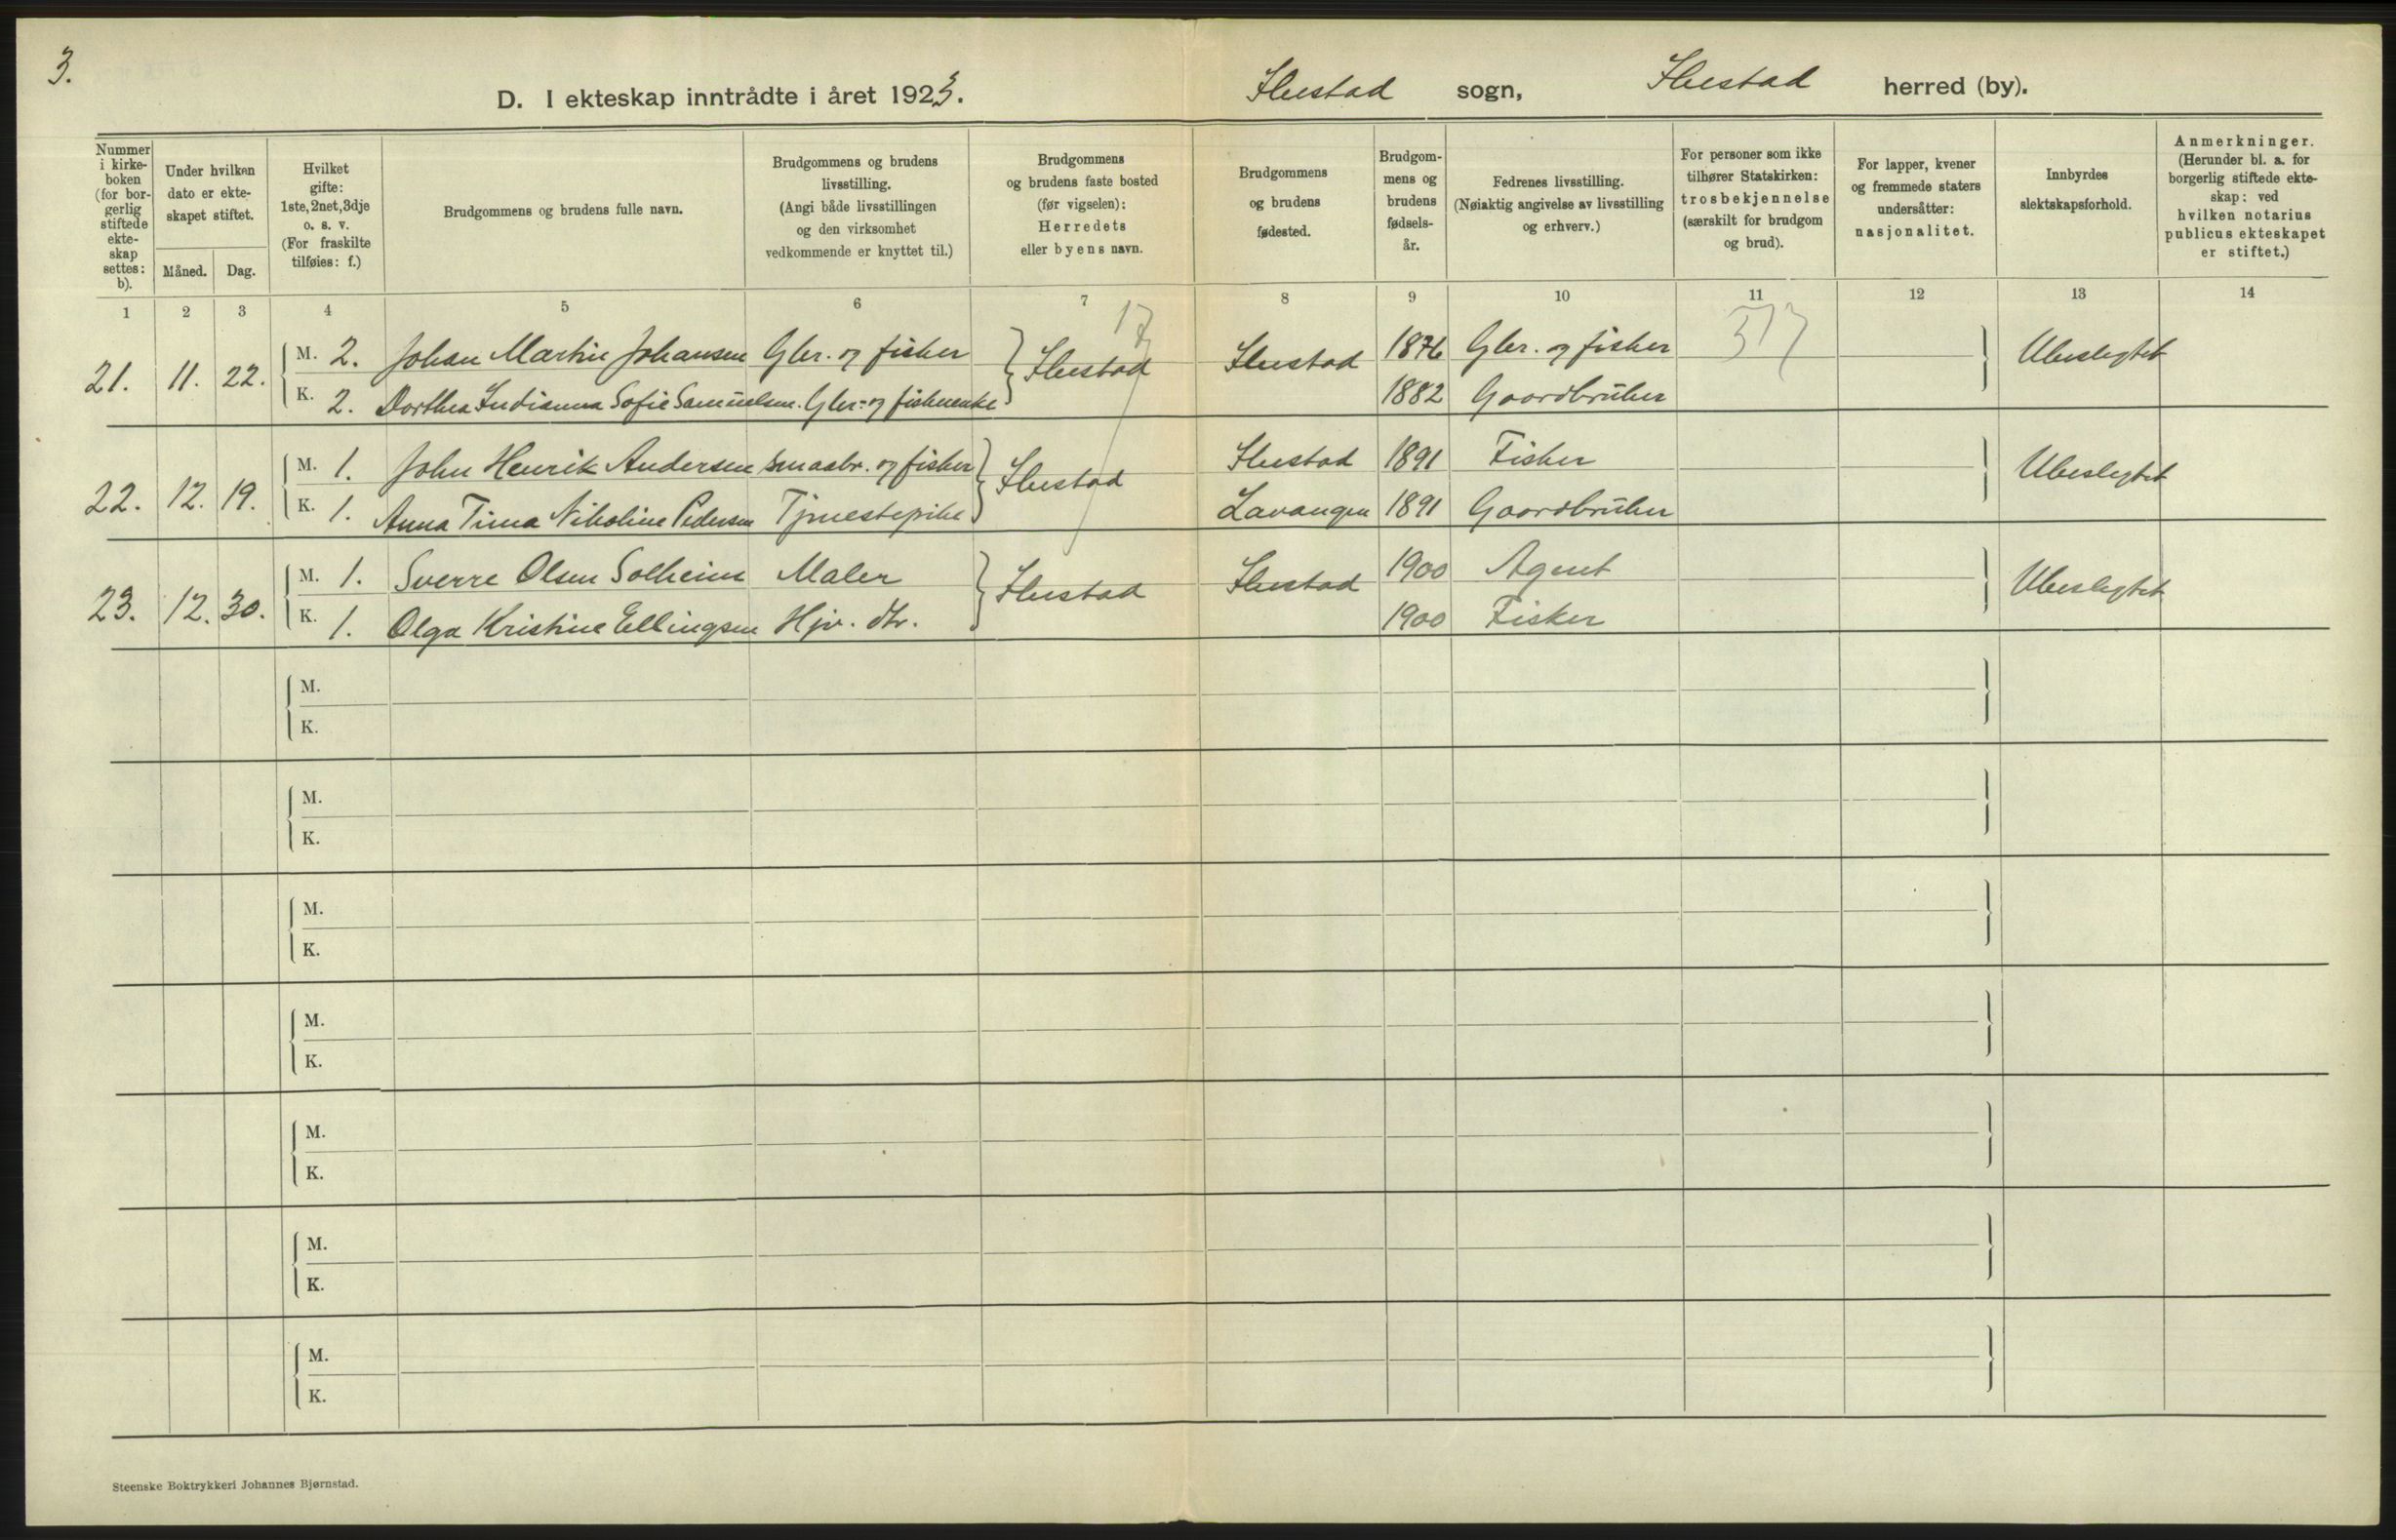 3.
D. I ekteskap inntrådte i året 1923. Ibestad sogn, Ibestad herred (by).
Nummer i kirke- boken (for bor- gerlig stiftede ekte- skap settes: b).
Under hvilken dato er ekte- skapet stiftet.
Måned. Dag.
Hvilket gifte: 1ste, 2net, 3dje o. s. v. (For fraskilte tilføies: f.)
Brudgommens og brudens fulle navn.
Brudgommens og brudens livsstilling. (Angi både livsstillingen og den virksomhet vedkommende er knyttet til.)
Brudgommens og brudens faste bosted (før vigselen): Herredets eller byens navn.
Brudgommens og brudens fødested.
Brudgom- mens og brudens fødsels- år.
Fedrenes livsstilling. (Nøiaktig angivelse av livsstilling og erhverv.)
For personer som ikke tilhører Statskirken: trosbekjennelse (særskilt for brudgom og brud).
For lapper, kvener og fremmede staters undersåtter: nasjonalitet.
Innbyrdes slektskapsforhold.
Anmerkninger. (Herunder bl. a. for borgerlig stiftede ekte- skap: ved hvilken notarius publicus ekteskapet er stiftet.)
1 2 3 4 5 6 7 8 9 10 11 12 13 14
17
21. 11. 22. M. 2. Johan Martin Johansen Gbr. og fisker Ibestad Ibestad 1876 Gbr. og fisker Ubeslegtet
K. 2. Dorthea Indianna Sofie Samuelsen. Gbr.- og fiskerenke 1882 Gaardbruker
22. 12. 19. M. 1. John Henrik Andersen smaabr. og fisker Ibestad Ibestad 1891 Fisker Ubeslegtet
K. 1. Anna Tina Nikoline Pedersen Tjenestepike Lavangen 1891 Gaardbruker
23. 12. 30. M. 1. Sverre Olsen Solheim Maler Ibestad Ibestad 1900 Agent Ubeslegtet
K. 1. Olga Kristine Ellingsen Hjv. dtr. 1900 Fisker
M.
K.
M.
K.
M.
K.
M.
K.
M.
K.
M.
K.
M.
K.
Steenske Boktrykkeri Johannes Bjørnstad.